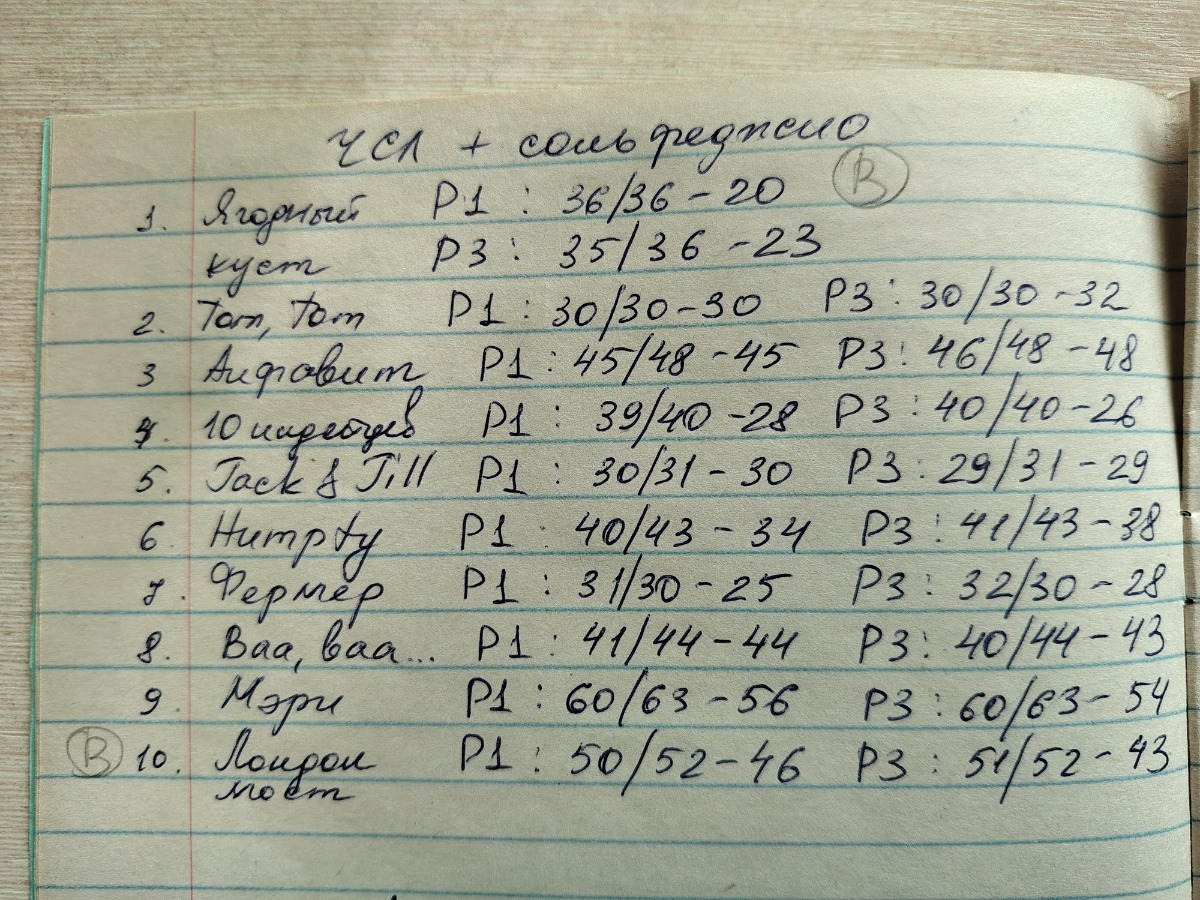 ЧСЛ + сольфеджио
1. Ягодный Р1 : 36/36 - 20 В
куст Р3 : 35/36 - 23
2. Tom, Tom Р1 : 30/30 - 30 Р3 : 30/30 - 32
3 Алфавит Р1 : 45/48 - 45 Р3 : 46/48 - 48
4. 10 индейцев Р1 : 39/40 - 28 Р3 : 40/40 - 26
5. Jack & Jill Р1 : 30/31 - 30 Р3 : 29/31 - 29
6 Humpty Р1 : 40/43 - 34 Р3 : 41/43 - 38
7. Фермер Р1 : 31/30 - 25 Р3 : 32/30 - 28
8. Baa, baa... Р1 : 41/44 - 44 Р3 : 40/44 - 43
9. Мэри Р1 : 60/63 - 56 Р3 : 60/63 - 54
В 10. Лондон Р1 : 50/52 - 46 Р3 : 51/52 - 43
мост